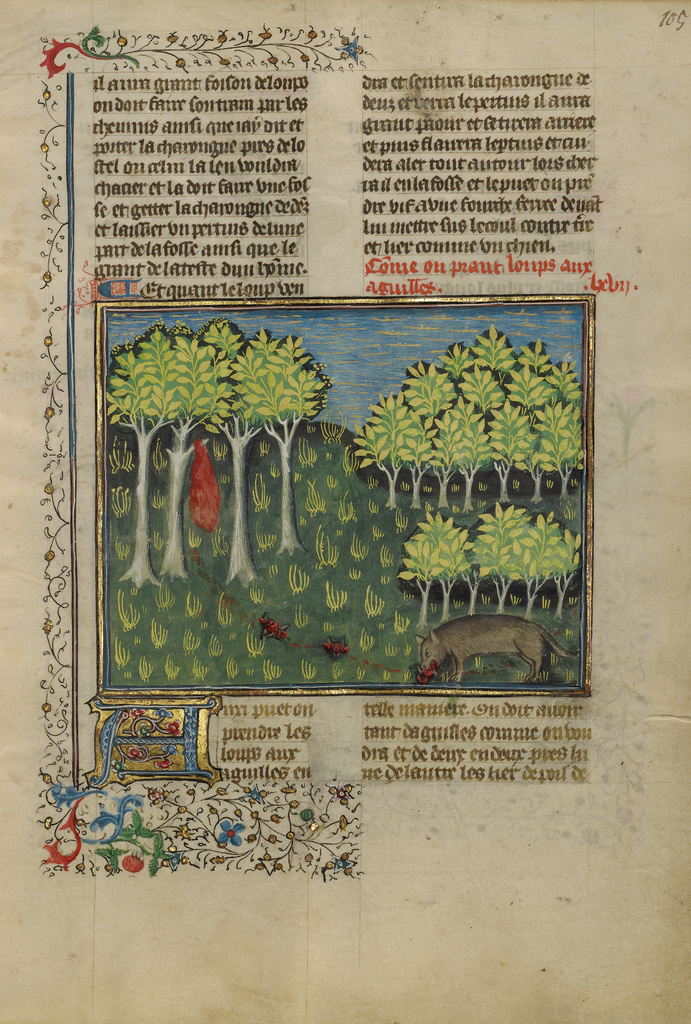 105
il aura grant foison de loups
on doit faire son train par les
chemins ainsi que iay dit et
porter la charongne pres de lo
stel ou celui la len vouldra
chacier et la doit faire vne fos
se et getter la charongne dedẽs
et laissier vn pertuis de lune
part de la fosse ainsi que le
grant de la teste dun hõme.
Et quant le loup ven
dra et sentira la charongne de
deuz et verra le pertuis il aura
grant paour et se tirera arriere
et puis flaurera le ptius et cui
dera aler tout autour lors cher
ra il en la fosse et le puet on prẽ
dre vif a vne fourche ferree deuãt
lui mettre sus le coul contre tre
et lier comme vn chien.
Cõme on prant loups aux
aguilles. .lxvij.
Ainxi puet on
prendre les
loups aux
aguilles en
telle maniere. On doit auoir
tant daguilles comme on vou
dra et de deux en deux pres lu
ne de lautre les lier de poil de